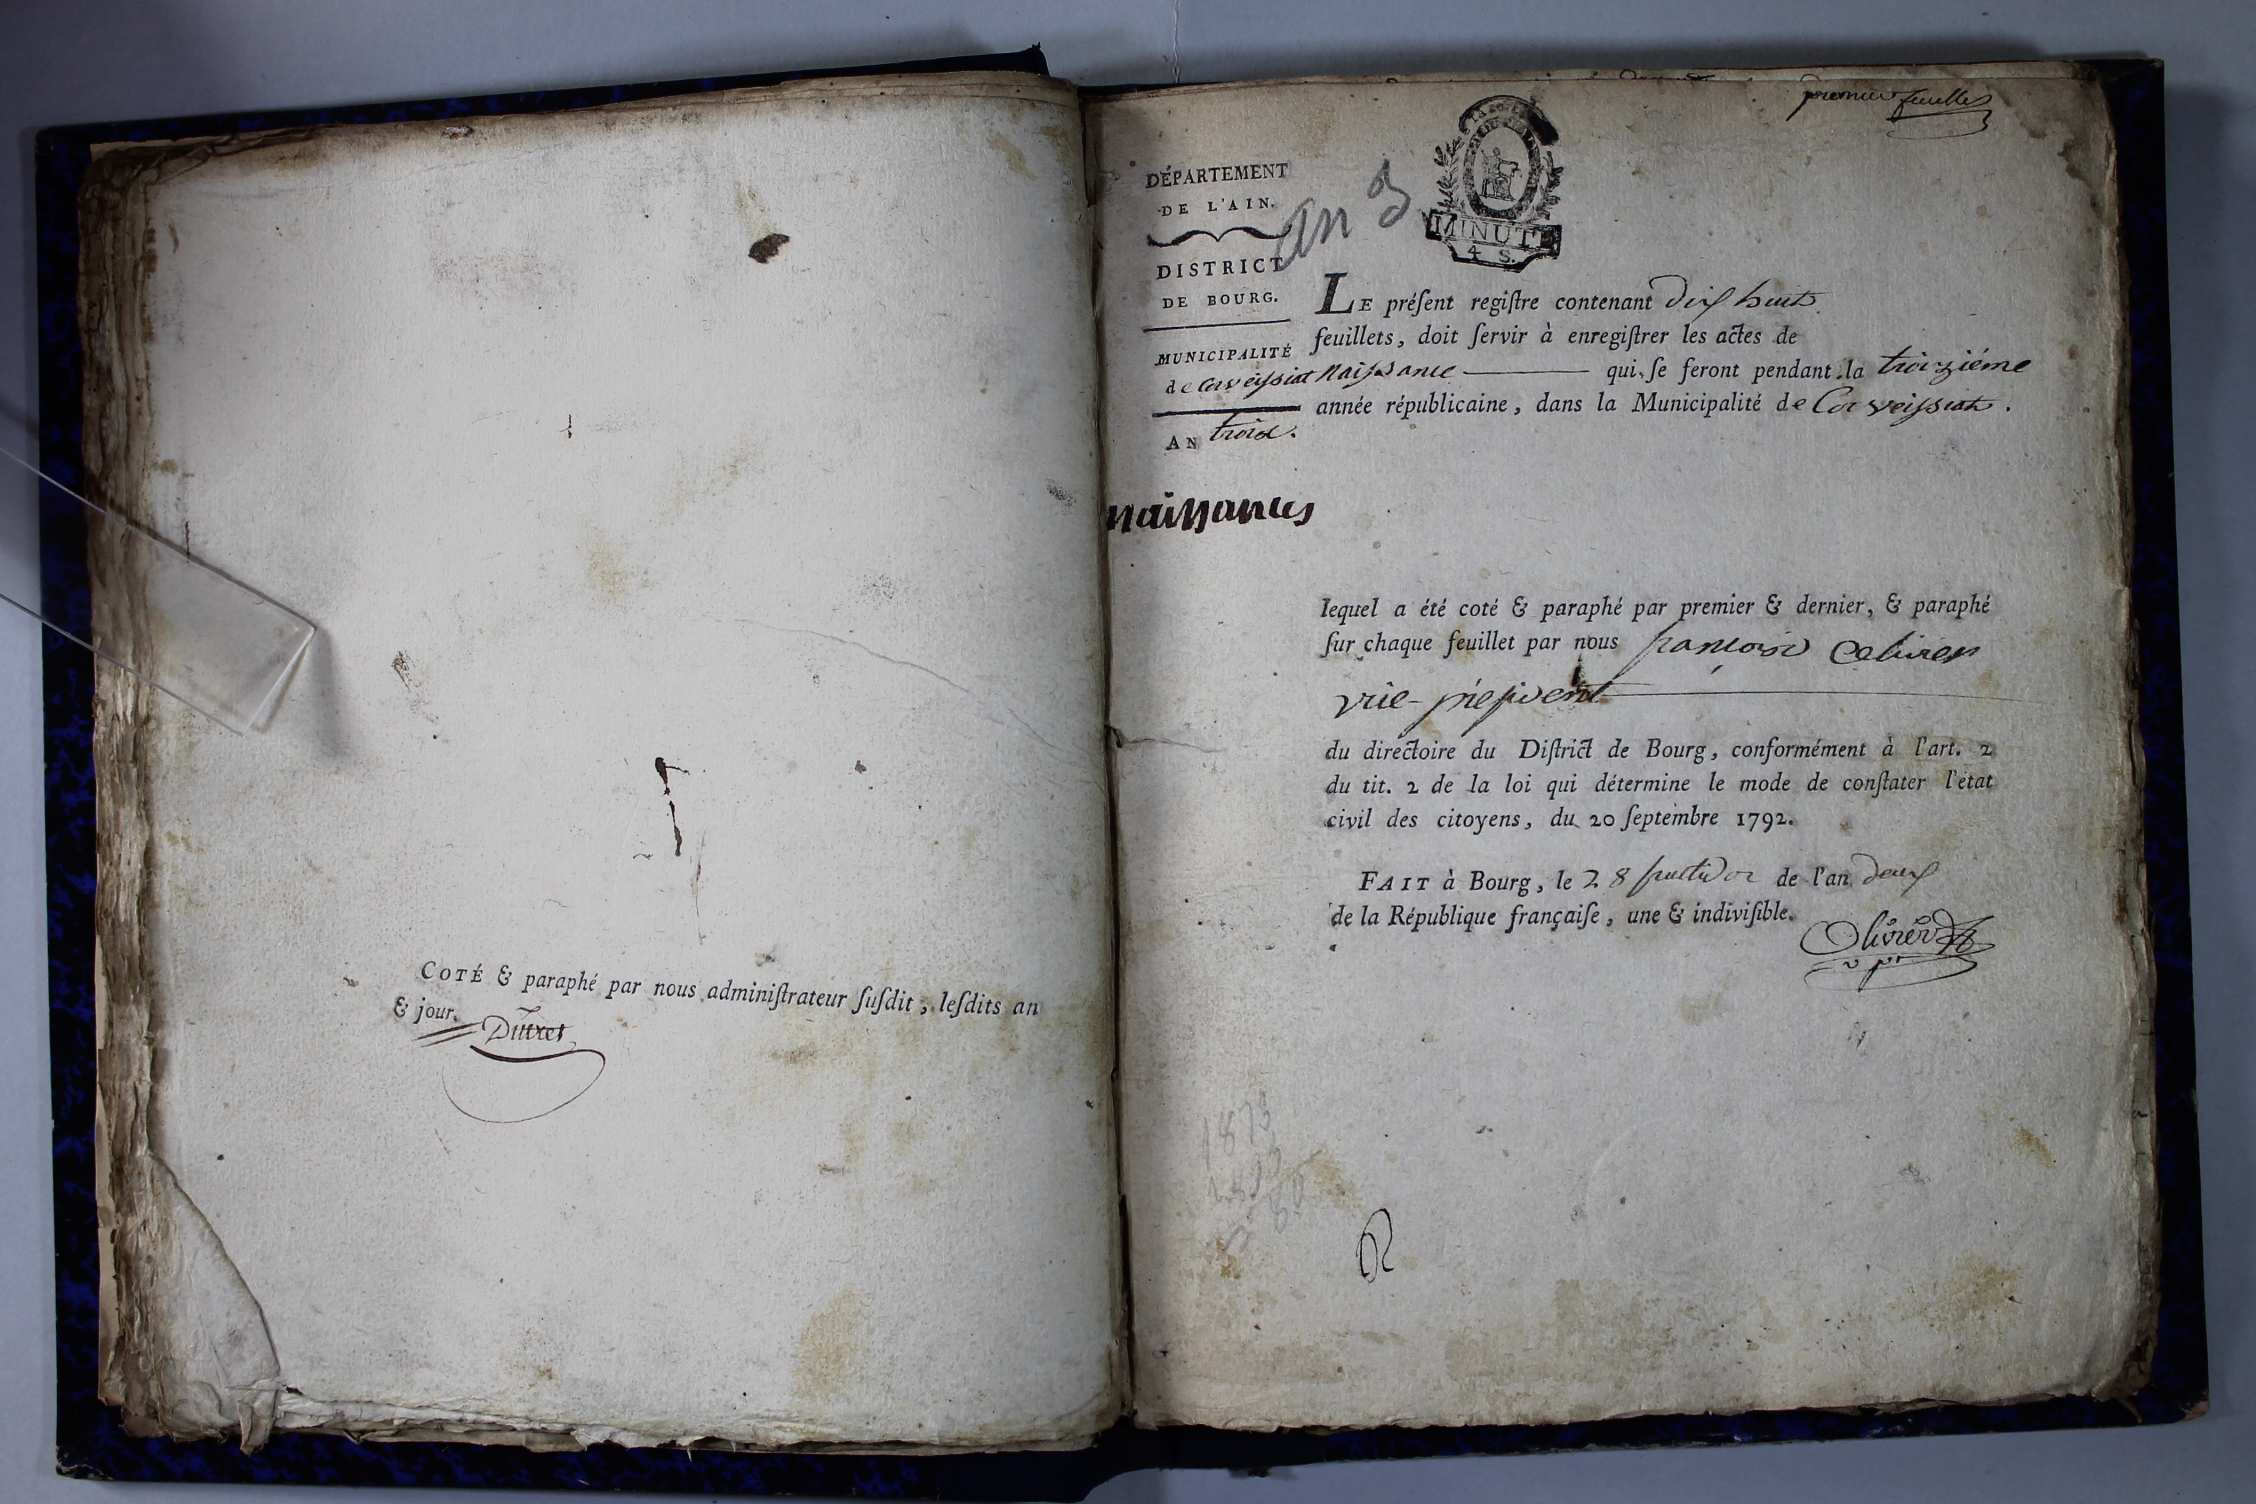 COTÉ & paraphé par nous adminiſtrateur ſuſdit, leſdits an
& jour.
premier feuillet
DÉPARTEMENT
DE L'AIN.
an 3
MINUTE
4 S.
DISTRICT
DE BOURG.
MUNICIPALITÉ
de Corveissiat
AN trois.
naissances
LE préſent regiſtre contenant dix huit
feuillets, doit ſervir à enregiſtrer les actes de
naissance qui ſe feront pendant la troizième
année républicaine, dans la Municipalité de Corveissiat.
lequel a été coté & paraphé par premier & dernier, & paraphé
ſur chaque feuillet par nous françois Olivier
vice-président
du directoire du Diſtrict de Bourg, conformément à l'art. 2
du tit. 2 de la loi qui détermine le mode de conſtater l'état
civil des citoyens, du 20 ſeptembre 1792.
FAIT à Bourg, le 28 fructidor de l'an deux
de la République françaiſe, une & indiviſible.
Olivier
v pt